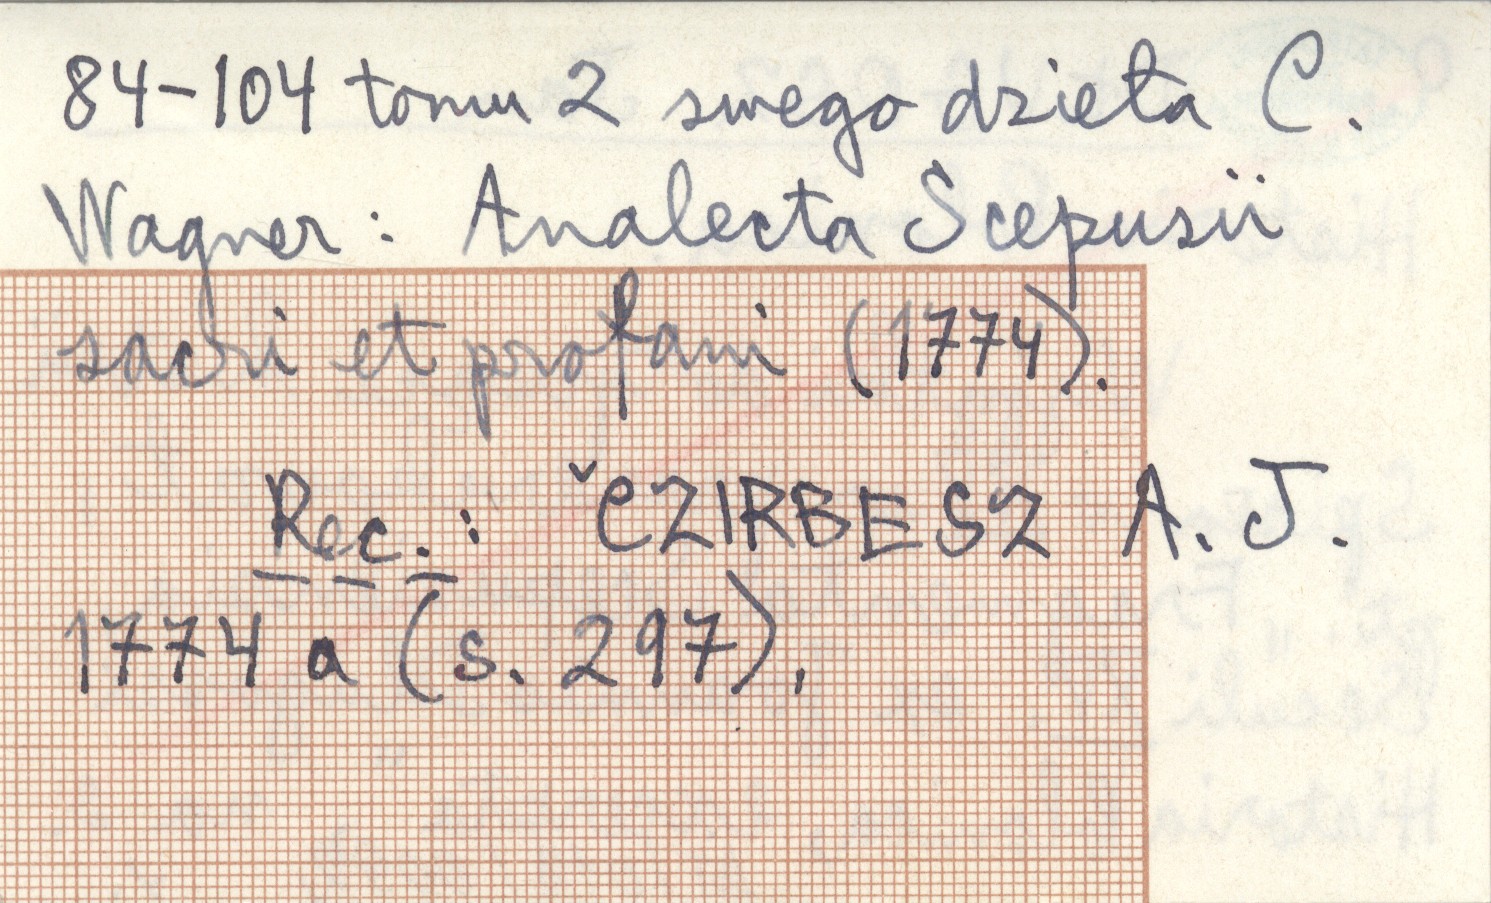 84-104 tomu 2 swego dzieła C.
Wagner: Analecta Scepusii
sacri et profani (1774).
Rec.: ČZIRBESZ A. J.
1774 a (s. 297).